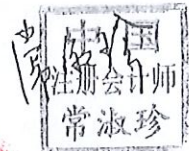 中国
注册会计师
常淑珍